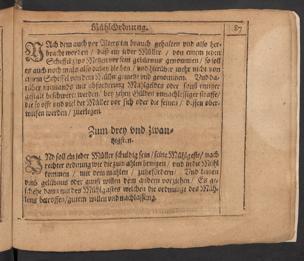 MühlOrdnung. 87
NAch dem auch vor Alters im brauch gehalten und also her-
bracht worden / daß ein jeder Müller / von einem jeden
Scheffel zwo Metzen vor sein gebürnus genommen / so soll
es auch noch mahls also dabey bleiben / und hierüber mehr nicht von
einem Scheffel von dem Müller genommen werden. Und da-
rüber niemands mit abforderung Mahlgeldes oder sonst einiger
gestalt beschweret werden / bey zehen Gülden unnachlässiger straffe /
die so offt und viel der Müller vor sich oder die seinen / dessen über-
wiesen werden / zuerlegen.
Zum drey und zwan-
tzigsten.
UNd soll ein jeder Müller schuldig sein / seine Mahlgäste / nach
rechter ordnung wie die zum ahlen bringen / und in die Mühl
kommen / mit dem mahlen / zubefördern / Und keinen
umb geschencks oder gunst willen dem andern vorziehen / Es ge-
schehe dann mit des Mühlgastes welchen die ordnunge des Mah-
lens betroffen / gutem willen und nachlassung.